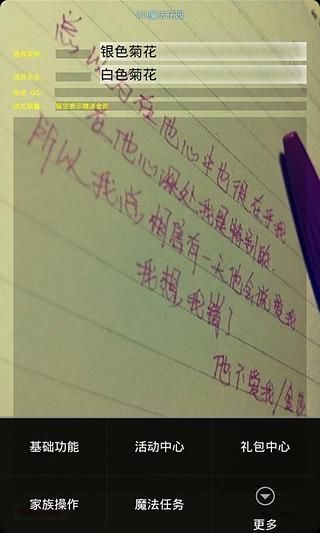 QQ魔法花园
选择花种：
银色菊花
选择花朵：
白色菊花
对方 QQ：
送花数量：
留空表示赠送全部
总以为在他心里也很在乎我
在他心深处我是特别的.
所以我总相信有一天他会说爱我
我想,我错了
他不爱我/
基础功能
活动中心
礼包中心
家族操作
魔法任务
更多